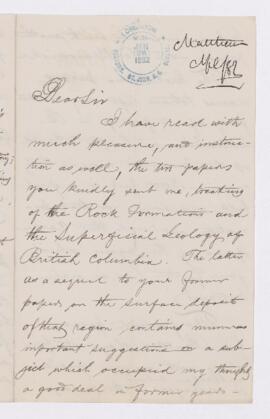 Matthew
Apl/82
1882
ST. JOHN, N.B.
Dear Sir
I have read with
much pleasure, and instruc-
tion as well, the two papers
you kindly sent me, treating
of the Rock Formation and
the Superficial Geology of
British Columbia. The latter
as a sequel to your former
paper on the surface deposits
of that region contains
important suggestions on a sub-
ject which occupied my thoughts
a good deal in former years-